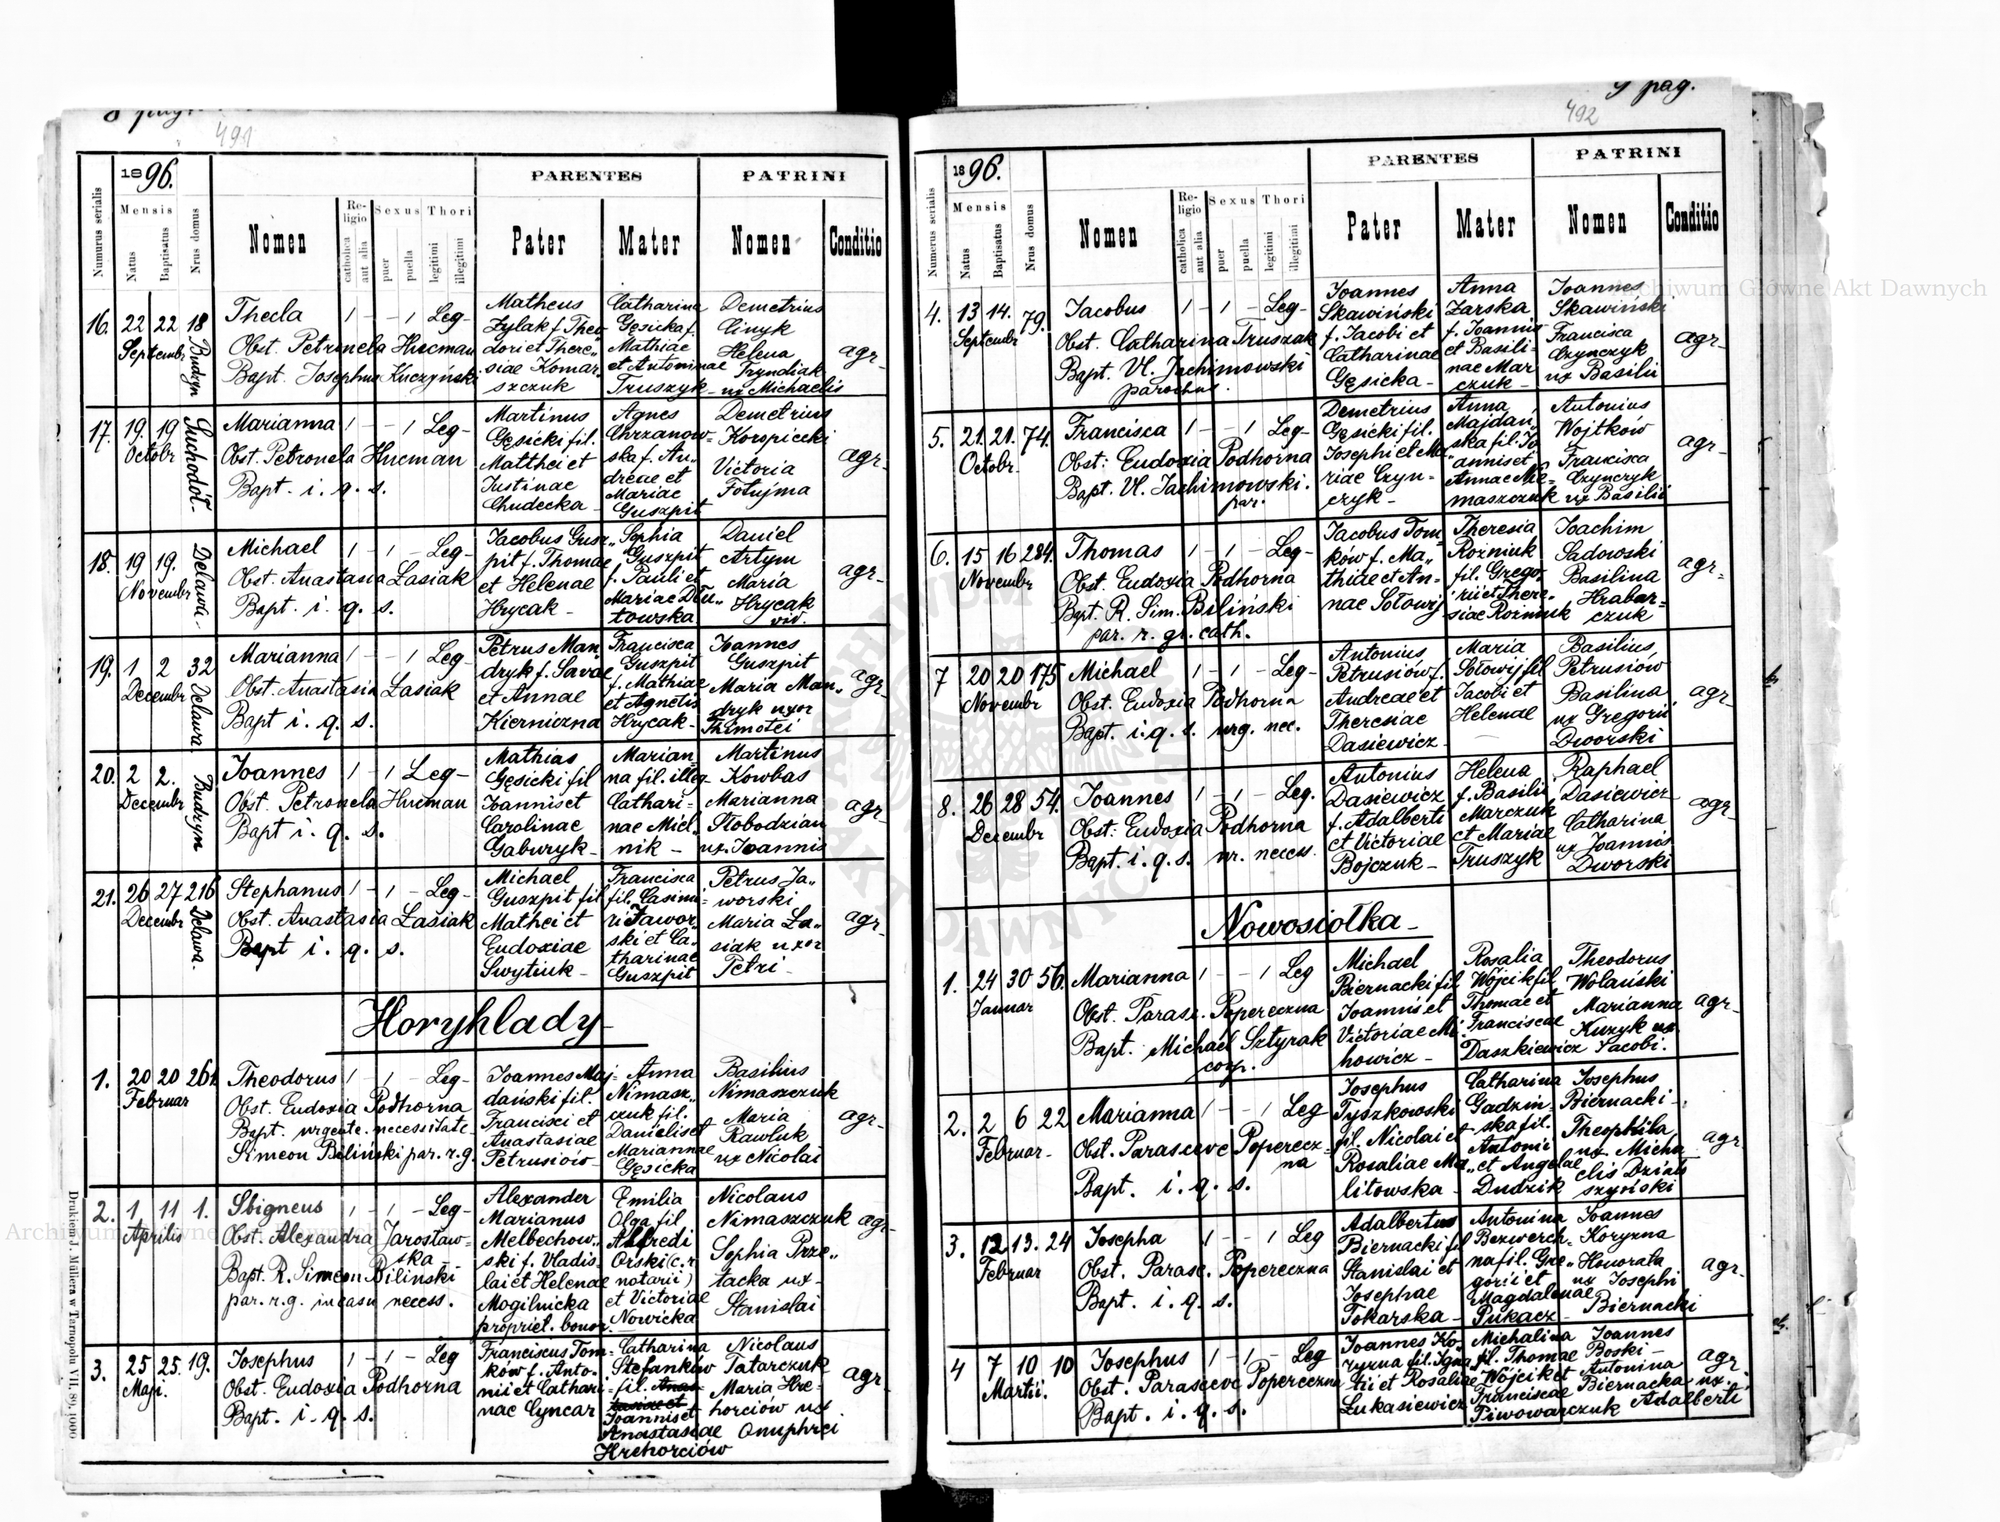 8 pag.
491
1896.
PARENTES
PATRINI
Numerus serialis
Mensis
Natus
Baptisatus
Nrus domus
Nomen
Religio
catholica
aut alia
Sexus
puer
puella
Thori
legitimi
illegitimi
Pater
Mater
Nomen
Conditio
16. 22 22 18 Thecla 1 - - 1 Leg- Matheus Catharina Demetrius
Septembr Budzyn Żylak f. Theo Gęsicka f. Cinyk
Obst. Petronela Hucman dori et There„ Mathiae Helena agr-
Bapt. Josephus Kuczyński siae Komar„ et Antoninae Hryndiak
szczuk Truszyk- ux Michaelis
17. 19. 19 Marianna 1 - - 1 Leg- Martinus Agnes Demetrius
Octobr Suchodół Gęsicki fil. Chrzanow= Koropiecki
Obst. Petronela Hucman Matthei et ska f. An„ Victoria agr-
Bapt. i. q. s. Justinae dreae et Fotujma
Chudecka - Mariae
Guszpit
18. 19 19. Michael 1 - 1 - Leg- Jacobus Gusz„ Sophia Daniel
Novembr Delawa- pit f. Thomae Guszpit Artym
Obst. Anastasia Łasiak et Helenae f. Pauli et Maria agr-
Bapt. i. q. s. Hrycak - Mariae Hrycak
towska vid.
19. 1 2 32 Marianna 1 - - 1 Leg- Petrus Man Francisca Joannes
Decembr Delawa dryk f. Savae Guszpit Guszpit
Obst. Anastasia Łasiak et Annae f. Mathiae Maria Man„ agr-
Bapt i. q. s. Kierniczna et Agnetis dryk uxor
Hrycak- Thimotei
20. 2 2. Joannes 1 - 1 Leg- Mathias Marian„ Martinus
Decembr Budzyn Gęsicki fil na fil. illeg Kowbas
Obst. Petronela Hucman Joannis et Cathari= Marianna agr-
Bapt i. q. s. Carolinae nae Miel„ Słobodzian
Gaburyk- nik - ux. Joannis
21. 26 27 216 Stephanus 1 - 1 - Leg- Michael Francisca Petrus Ja„
Decembr Delawa. Guszpit fil fil. Casimi= worski
Obst. Anastasia Łasiak Mathei et ri Jawor„ Maria Ła„ agr-
Bapt i. q. s. Eudoxiae ski et Ca„ siak uxor
Swytiuk- tharinae Petri -
Guszpit
Horyhlady-
1. 20 20 261. Theodorus 1 - 1 - Leg- Joannes Maj- Anna Basilius
Februar dański fil. Nimasz„ Nimaszczuk
Obst. Eudoxia Podhorna Francisci et czuk fil. Maria agr-
Bapt. urgente necessitate- Anastasiae Danielis et Rawluk
Simeon Biliński par. r. g. Petrusiów- Mariannae ux Nicolai
Gęsicka
2. 1 11 1. Sbigneus 1 - 1 - Leg- Alexander Emilia Nicolaus
Aprilis Marianus Olga fil Nimaszczuk agr-
Obst. Alexandra Jarosław= Melbechow„ Alfredi
ska - ski f. Vladis„ Orski (c. r. Sophia Prze„
Bapt. R. Simeon Bilinski- lai et Helenae notarii) tacka ux-
par. r. g. in casu necess. Mogilnicka et Victoriae Stanislai
propriet. bonor. Nowicka
3. 25 25. 19. Josephus 1 - 1 - Leg Franciscus Tom= Catharina Nicolaus
Maji. ków f. Anto- Stefanków Tatarczuk
Obst. Eudoxia Podhorna nii et Cathari- fil. Maria Hre= agr-
Bapt. i. q. s. nae Cyncar Joannis et horciów ux
Anastasiae Onuphrei
Hrehorciów
Drukiem J. Müllera w Tarnopolu
9 pag.
492
1896.
PARENTES
PATRINI
Numerus serialis
Mensis
Natus
Baptisatus
Nrus domus
Nomen
Religio
catholica
aut alia
Sexus
puer
puella
Thori
legitimi
illegitimi
Pater
Mater
Nomen
Conditio
4. 13 14. 79. Jacobus 1 - 1 - Leg- Joannes Anna Joannes
Septembr Skawiński Żarska Skawiński
Obst. Catharina Truszak f. Jacobi et f. Joannis Francisca agr-
Bapt. Vl. Jachimowski Catharinae et Basili= Czynczyk
parochus. Gęsicka- nae Mar ux Basilii
czuk-
5. 21. 21. 74. Francisca 1 - - 1 Leg- Demetrius Anna Antonius
Octobr- Gęsicki fil. Majdan„ Wojtków
Obst: Eudoxia Podhorna Josephi et Ma„ ska fil. Jo Francisca agr-
Bapt. Vl. Jachimowski. riae Czyn= annis et Czynczyk
par. czyk- Annae Nie= ux Basilii
maszczuk
6. 15 16 284. Thomas 1 - 1 - Leg- Jacobus Tom= Theresia Joachim
Novembr ków f. Ma„ Rożniuk Sadowski
Obst. Eudoxia Podhorna thiae et An= fil. Grego, Basilina agr-
Bapt. R. Sim. Biliński nae Sołowij rii et There„ Hrabar=
par. r. gr. cath. siae Rożniuk czuk
7 20 20 175 Michael 1 - 1 - Leg- Antonius Maria Basilius
Novembr Petrusiów f. Sołowij fil Petrusiów
Obst. Eudoxia Podhorna Andreae et Jacobi et Basilina agr-
Bapt. i. q. s. urg. nec. Theresiae Helenae ux Gregorii
Dasiewicz- Dworski
8. 26 28 54. Joannes 1 - 1 - Leg. Antonius Helena Raphael
Decembr Dasiewicz f. Basilii Dasiewicz
Obst: Eudoxia Podhorna f. Adalberti Marczuk Catharina agr-
Bapt. i. q. s. ur. necess. et Victoriae et Mariae ux Joannis
Bojczuk- Truszyk Dworski
Nowosiołka-
1. 24 30 56. Marianna 1 - - 1 Leg Michael Rosalia Theodorus
Januar Biernacki fil Wójcik fil Wolański
Obst. Parasc. Popereczna Joannis et Thomae et Marianna agr-
Bapt. Michael Sztyrak Victoriae Mi Franciscae Kuzyk ux.
coop. howicz- Daszkiewicz Jacobi.
2. 2 6 22 Marianna 1 - - 1 Leg Josephus Catharina Josephus
Februar- Tyszkowski Gadzin= Biernacki-
Obst. Parasceve Poperecz= fil. Nicolai et ska fil. Theophila agr
na Rosaliae Ma„ Antonii ux Micha
Bapt. i. q. s. litowska- et Angelae elis
Dudzik
3. 12 13. 24 Josepha 1 - - 1 Leg Adalbertus Antonina Joannes
Februar Biernacki fil Bezwerch= Koryzna
Obst. Parasc. Popereczna Stanislai et na fil. Gre„ Honorata agr-
Bapt. i. q. s. Josephae gorii et ux Josephi
Tokarska- Magdalenae Biernacki
Pukacz-
4 7 10 10 Josephus 1 - 1 - Leg Joannes Ko„ Michalina Joannes
Martii. ryzna fil. Igna fil. Thomae Boski-
Obst. Parasceve Popereczna tii et Rosaliae Wójcik et Antonina agr-
Bapt. i. q. s. Łukasiewicz Franciscae Biernacka ux.
Piwowarczuk Adalberti
Archiwum Główne Akt Dawnych
Archiwum Główne Akt Dawnych